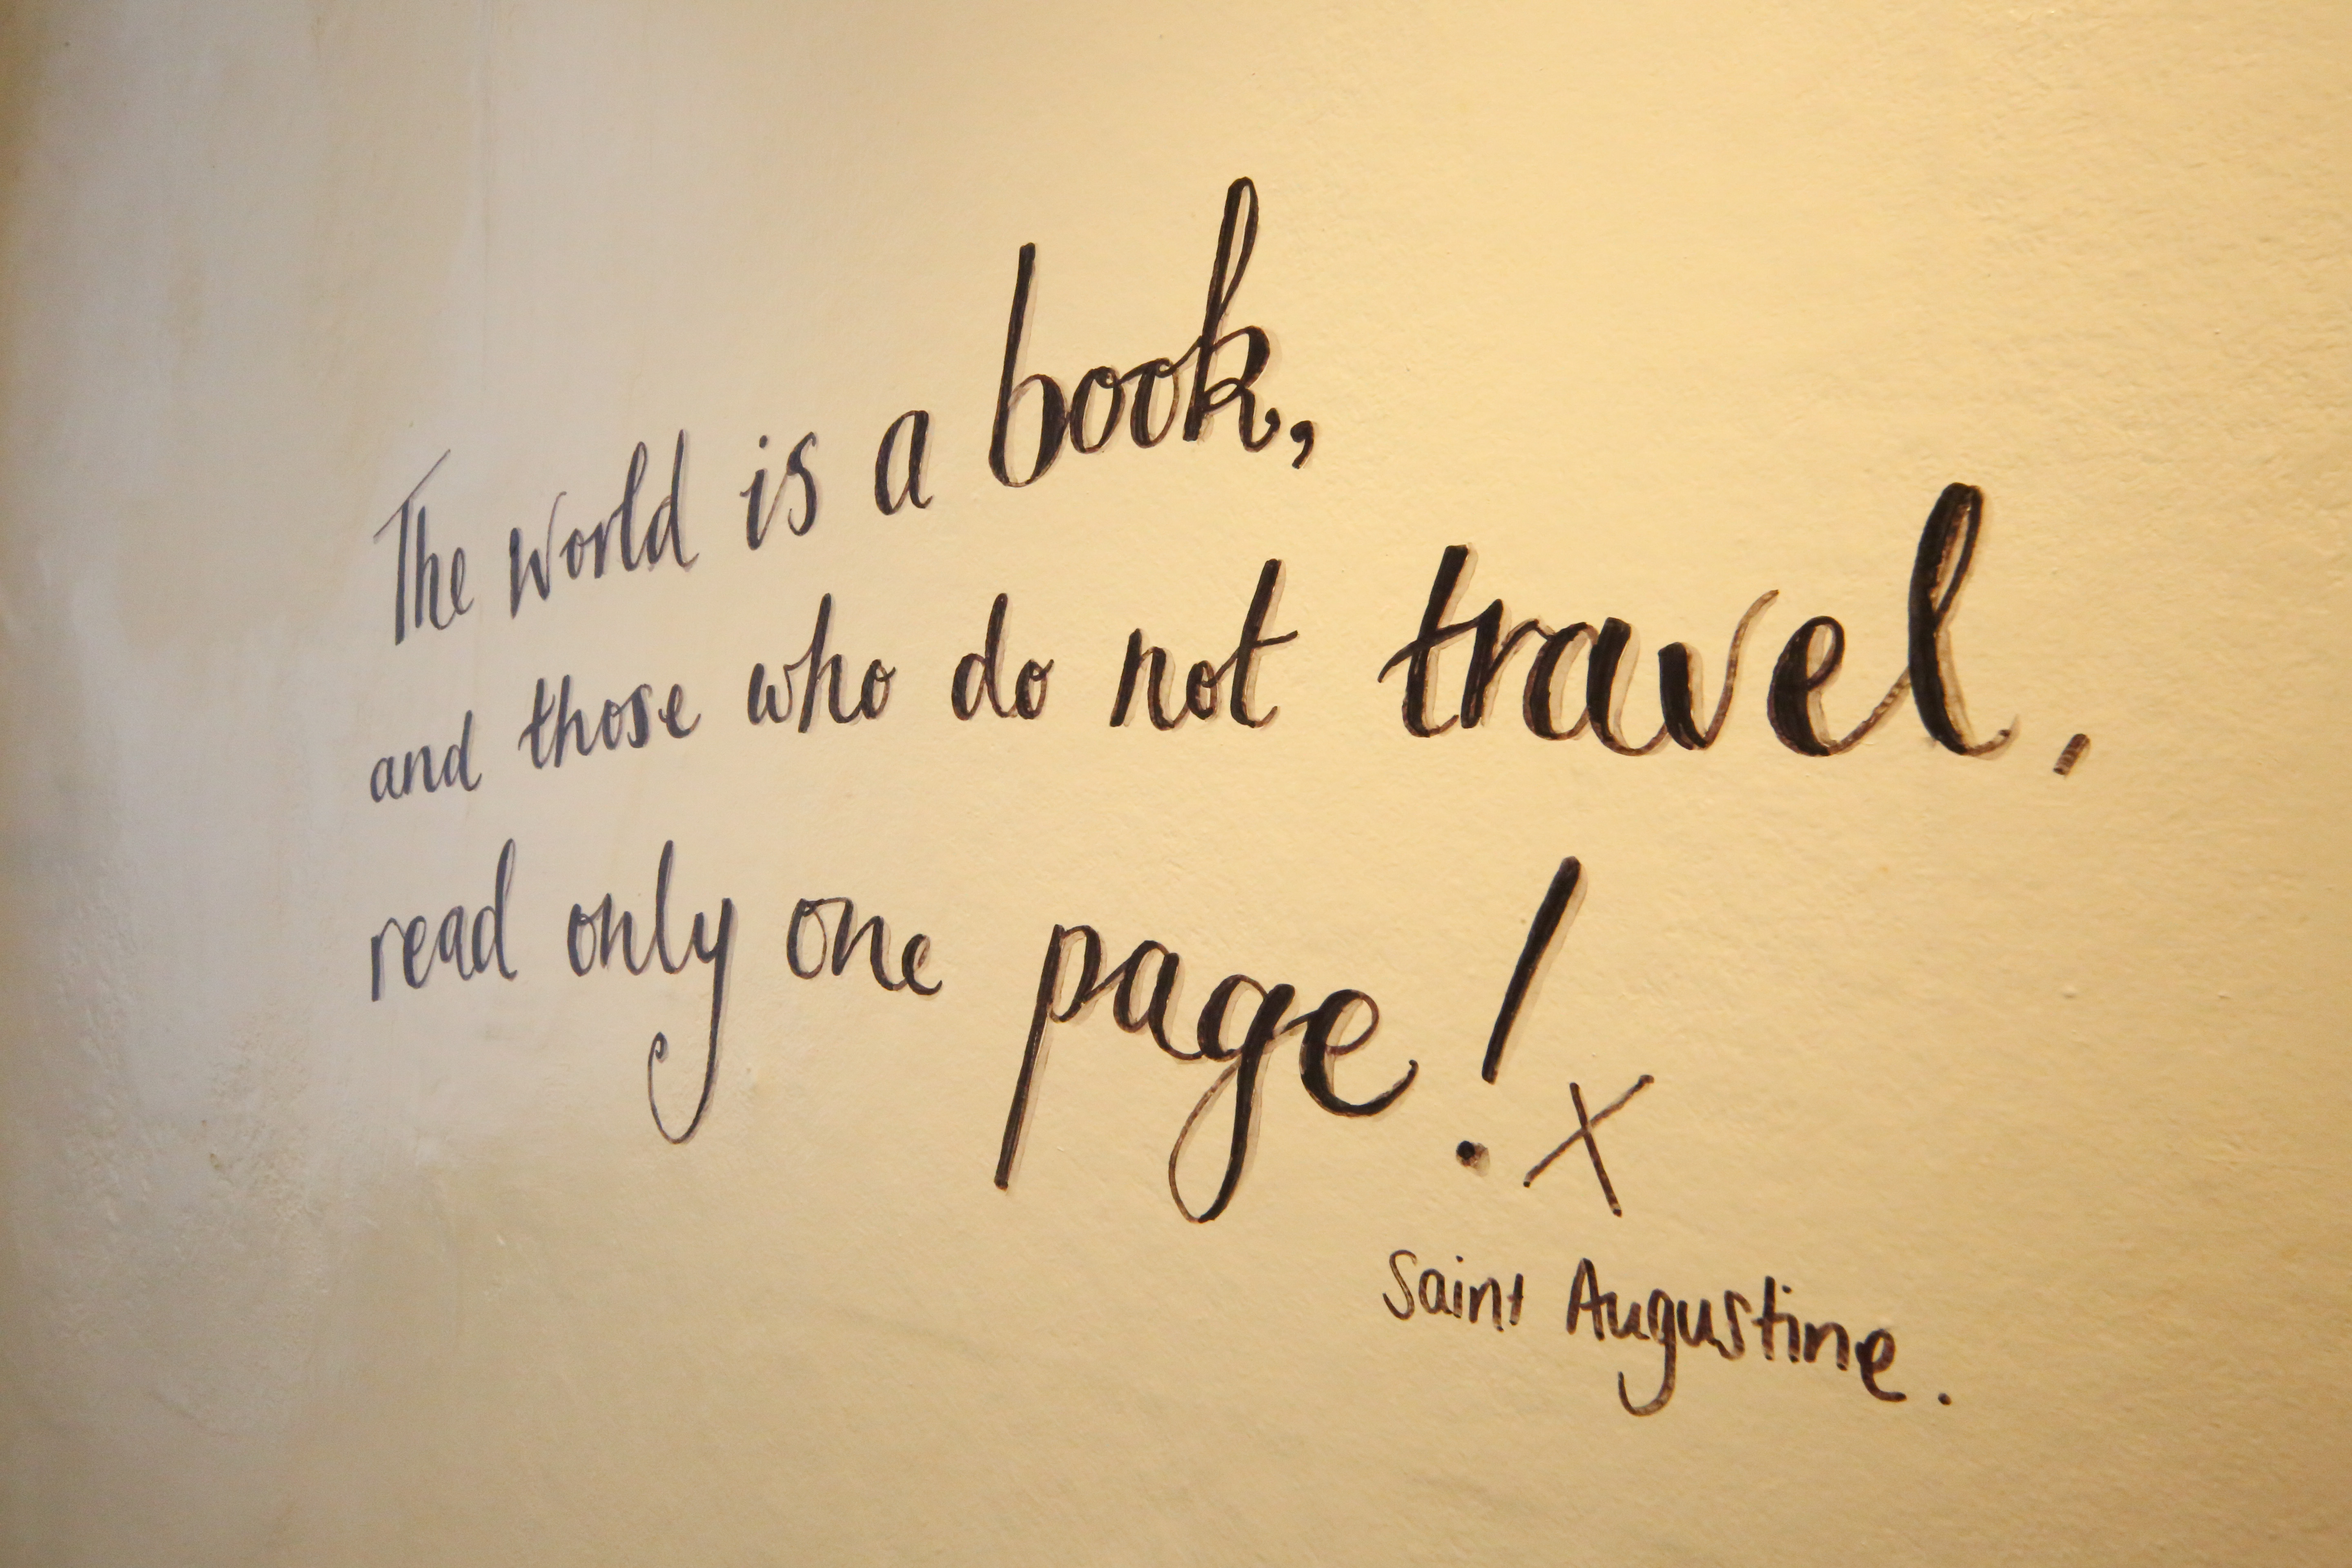 The world is a book,
and those who do not travel.
read only one page! x
Saint Augustine.